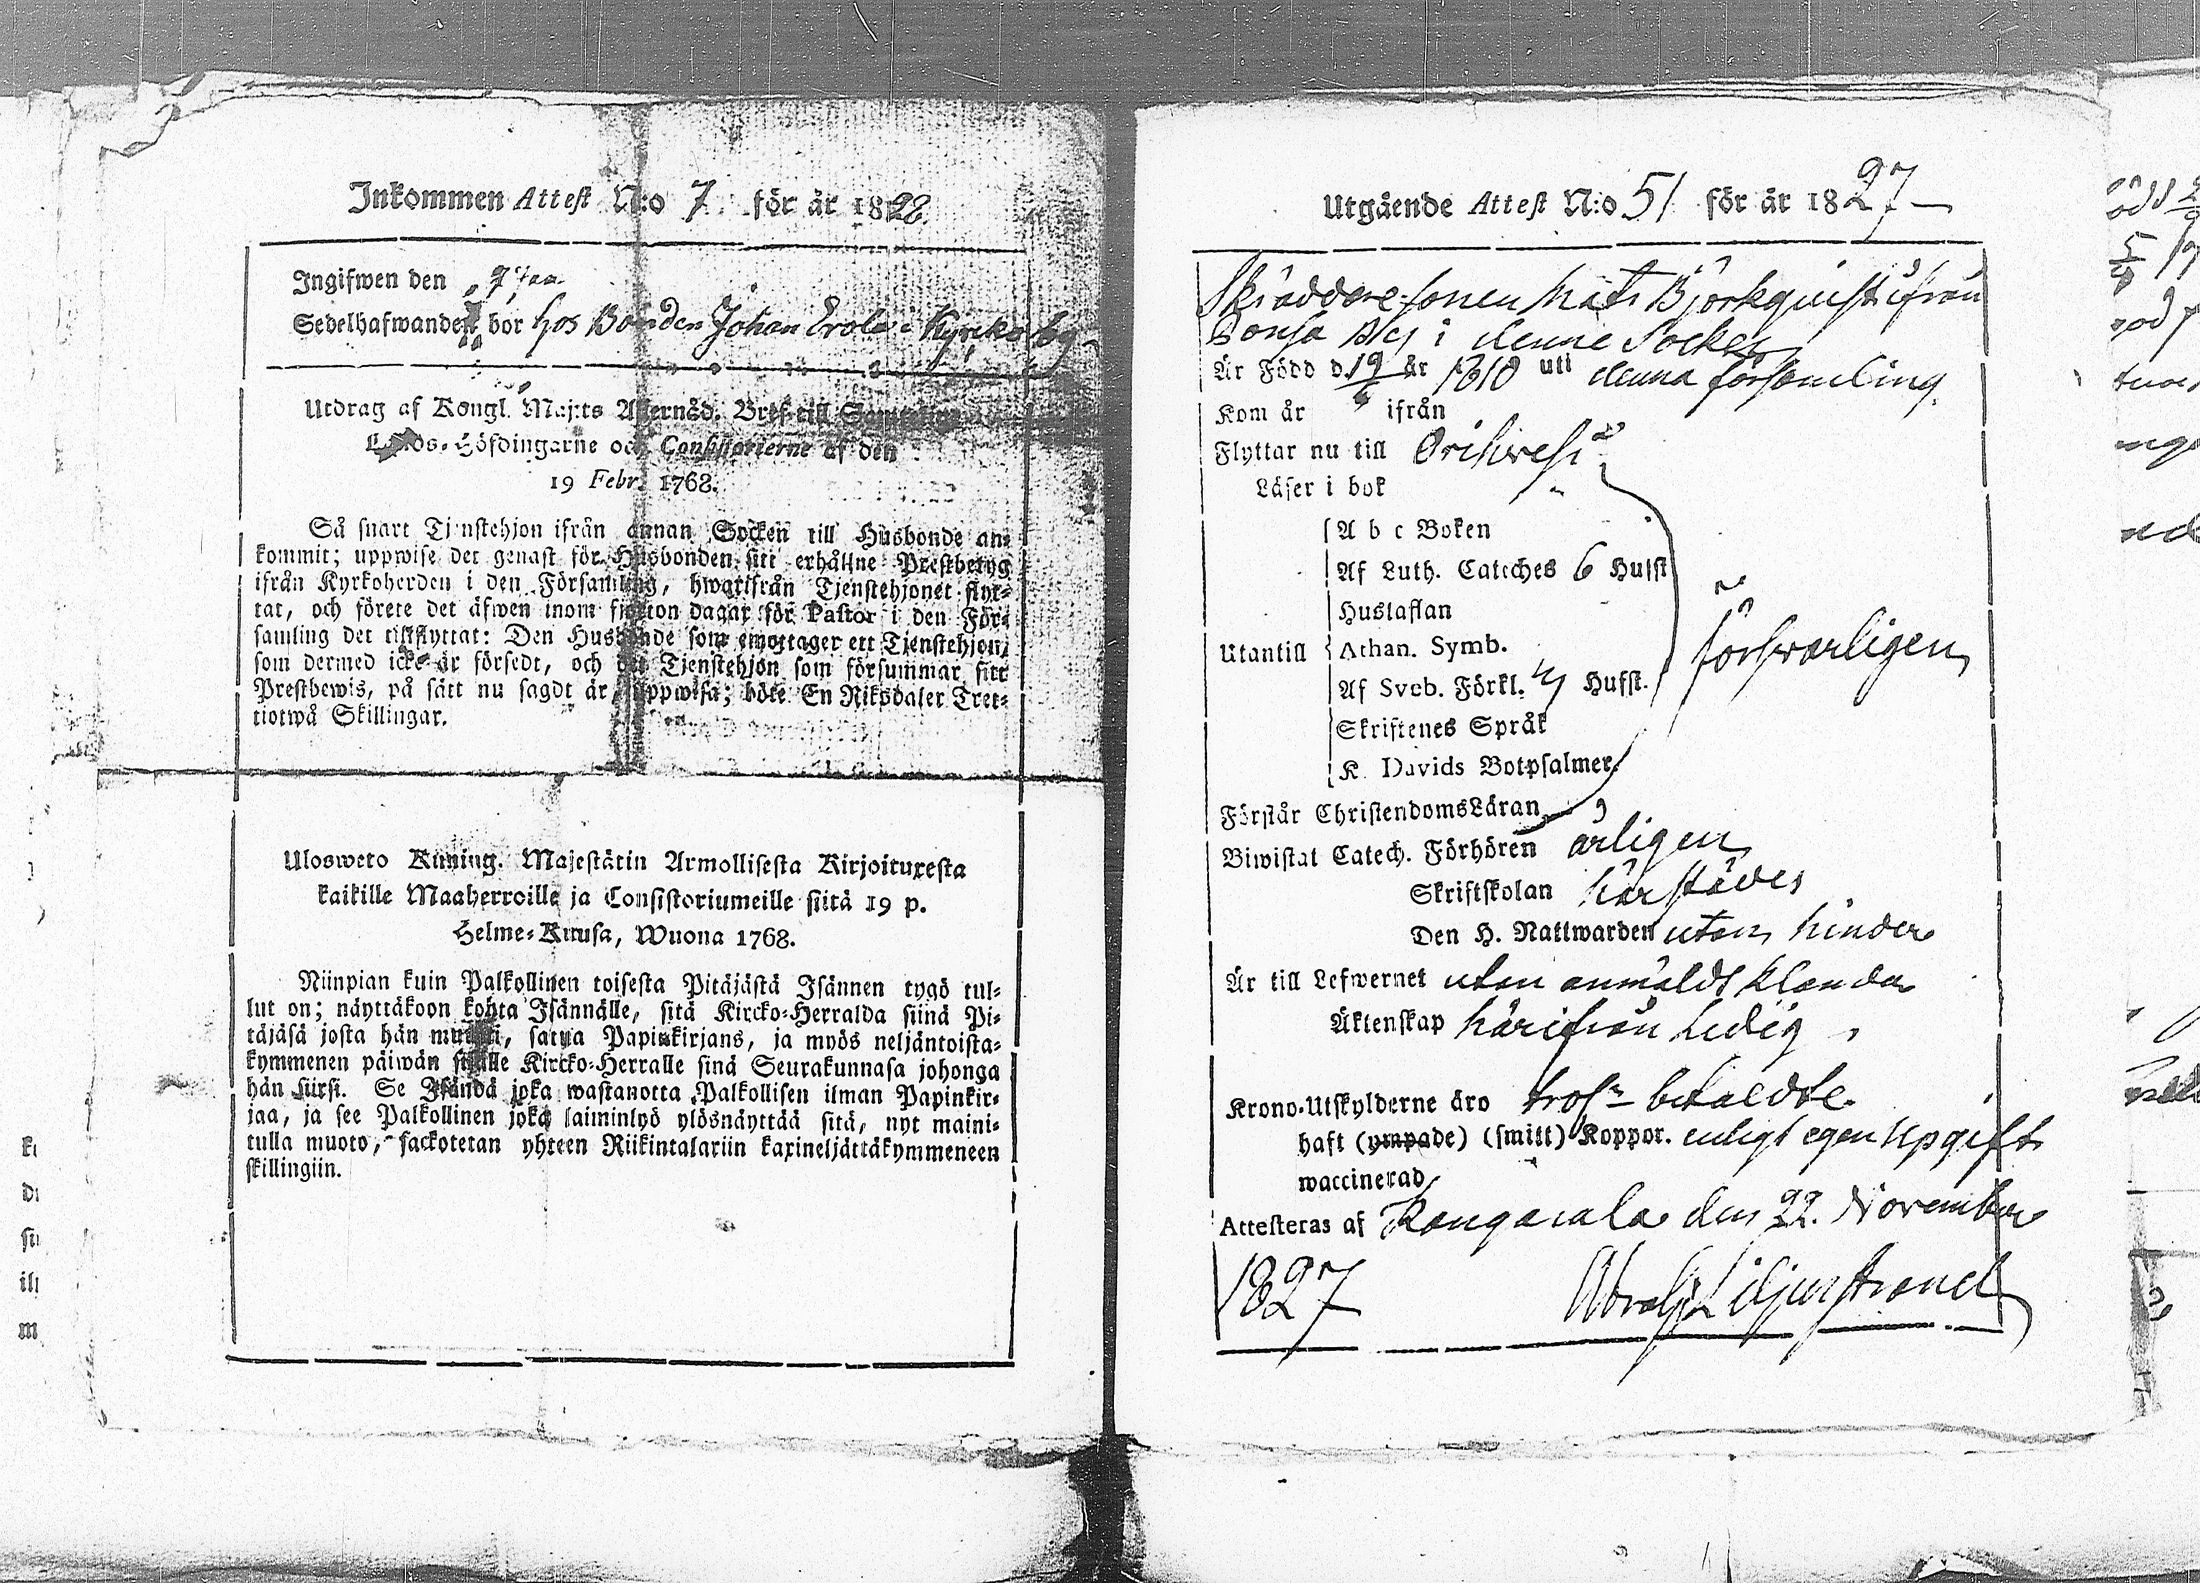 Inkommen Attest N:o 7. för år 1828.
Ingifwen den 9 Jan
Sedelhafwanden bor hos Bonden Johan Erola i Kyrkoby
Utdrag af Kongl. Maj:ts Allernåd. Bref till Samtelige
Lands-Höfdingarne och Consistorierne af den
19 Febr. 1768.
Så snart Tjenstehjon ifrån annan Socken till Husbonde an-
kommit; uppwise det genast för Husbonden sitt erhållne Prestbetyg
ifrån Kyrkoherden i den Församling, hwarifrån Tjenstehjonet flyt-
tat, och förete det äfwen inom fjorton dagar för Pastor i den För-
samling det tillflyttat: Den Husbonde som emottager ett Tjenstehjon,
som dermed icke är försedt, och det Tjenstehjon som försummar sitt
Prestbewis, på sätt nu sagdt är, uppwisa; böte En Riksdaler Tret-
tiotwå Skillingar.
Ulosweto Kuning. Majestätin Armollisesta Kirjoituxesta
kaikille Maaherroille ja Consistoriumeille siitä 19 p.
Helme-Kuusa, Wuona 1768.
Niinpian kuin Palkollinen toisesta Pitäjästä Isännen tygö tul-
lut on; näyttäkoon kohta Isännälle, sitä Kircko-Herralda siinä Pi-
täjäsä josta hän muutti, satua Papinkirjans, ja myös neljäntoista-
kymmenen päiwän sisälle Kircko-Herralle sinä Seurakunnasa johonga
hän siirsi. Se Isändä joka wastanotta Palkollisen ilman Papinkir-
jaa, ja see Palkollinen joka laiminlyö ylösnäyttää sitä, nyt maini-
tulla muoto, sackotetan yhteen Riikintalariin kaxineljättäkymmeneen
skillingiin.
Utgående Attest N:o 51 för år 1827
Skräddare sonen Mats Björkquist ifrån
i denne Socken
Är Född d. 19 år 1810 uti denna församling.
Kom år " ifrån
Flyttar nu till Orihwesi
Läser i bok
A b c Boken
Af Luth. Cateches 6 Hufst
Hustaflan
Utantill Athan. Symb.
Af Sveb. Förkl. Hufst.
Skriftenes Språk
K. Davids Botpsalmer.
försvarligen
Förstår ChristendomsLäran
Biwistat Catech. Förhören årligen
Skriftskolan härstädes
Den H. Nattwarden utan hinder
Är till Lefwernet utan anmäldt klander
Äktenskap härifrån ledig
Krono-Utskylderne äro betaldte
haft (ympade) (smitt) Koppor. enligt egen Upgift
waccinerad
Attesteras af Kangasala den 22. November
1827 Abrah. Liljestrand